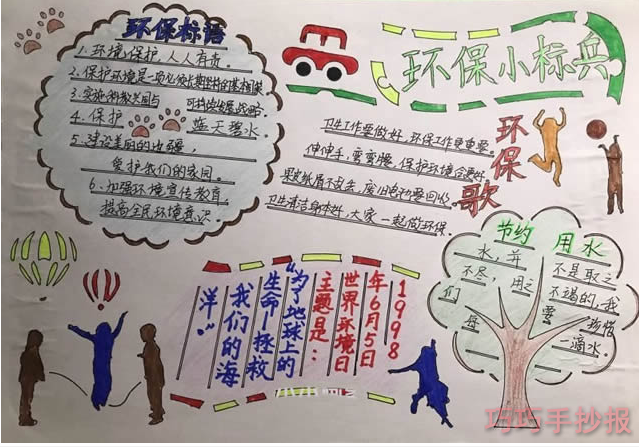 环保标语
1、环境保护,人人有责。
2、保护环境是一项必须长期坚持的基本国策
3、实施科教兴国与可持续发展战略
4、保护蓝天碧水。
5、建设美丽的边疆,
爱护我们的家园。
6、加强环境宣传教育,
提高全民环境意识。
环保小标兵
环保歌
卫生工作要做好,环保工作更重要
伸伸手,弯弯腰,保护环境
果皮纸屑不乱丢,废旧电池要回收
卫生清洁身体好,大家一起做环保。
节约用水
水,并不是取之
不尽,用之不竭的,我
们要珍惜
每一滴水。
1998
年6月5日
世界环境日
主题是:
“为了地球上的
生命—拯救
我们的海
洋。”
巧巧手抄报